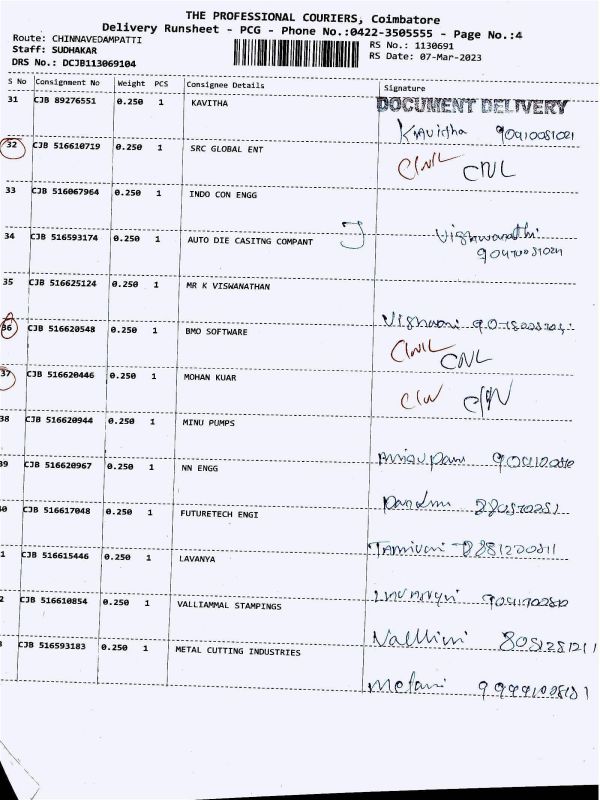 THE PROFESSIONAL COURIERS, Coimbatore
Delivery Runsheet - PCG - Phone No.:0422-3505555 - Page No.:4
Route: CHINNAVEDAMPATTI
Staff: SUDHAKAR
DRS No.: DCJB113069104
RS No.: 1130691
RS Date: 07-Mar-2023
S No Consignment No Weight PCS Consignee Details Signature
31 CJB 89276551 0.250 1 KAVITHA DOCUMENT DELIVERY
32 CJB 516610719 0.250 1 SRC GLOBAL ENT
CNL CNL
33 CJB 516067964 0.250 1 INDO CON ENGG
34 CJB 516593174 0.250 1 AUTO DIE CASITNG COMPANT
35 CJB 516625124 0.250 1 MR K VISWANATHAN
36 CJB 516620548 0.250 1 BMO SOFTWARE
CNL CNL
37 CJB 516620446 0.250 1 MOHAN KUAR
38 CJB 516620944 0.250 1 MINU PUMPS
39 CJB 516620967 0.250 1 NN ENGG
0 CJB 516617048 0.250 1 FUTURETECH ENGI
1 CJB 516615446 0.250 1 LAVANYA
2 CJB 516610854 0.250 1 VALLIAMMAL STAMPINGS
CJB 516593183 0.250 1 METAL CUTTING INDUSTRIES